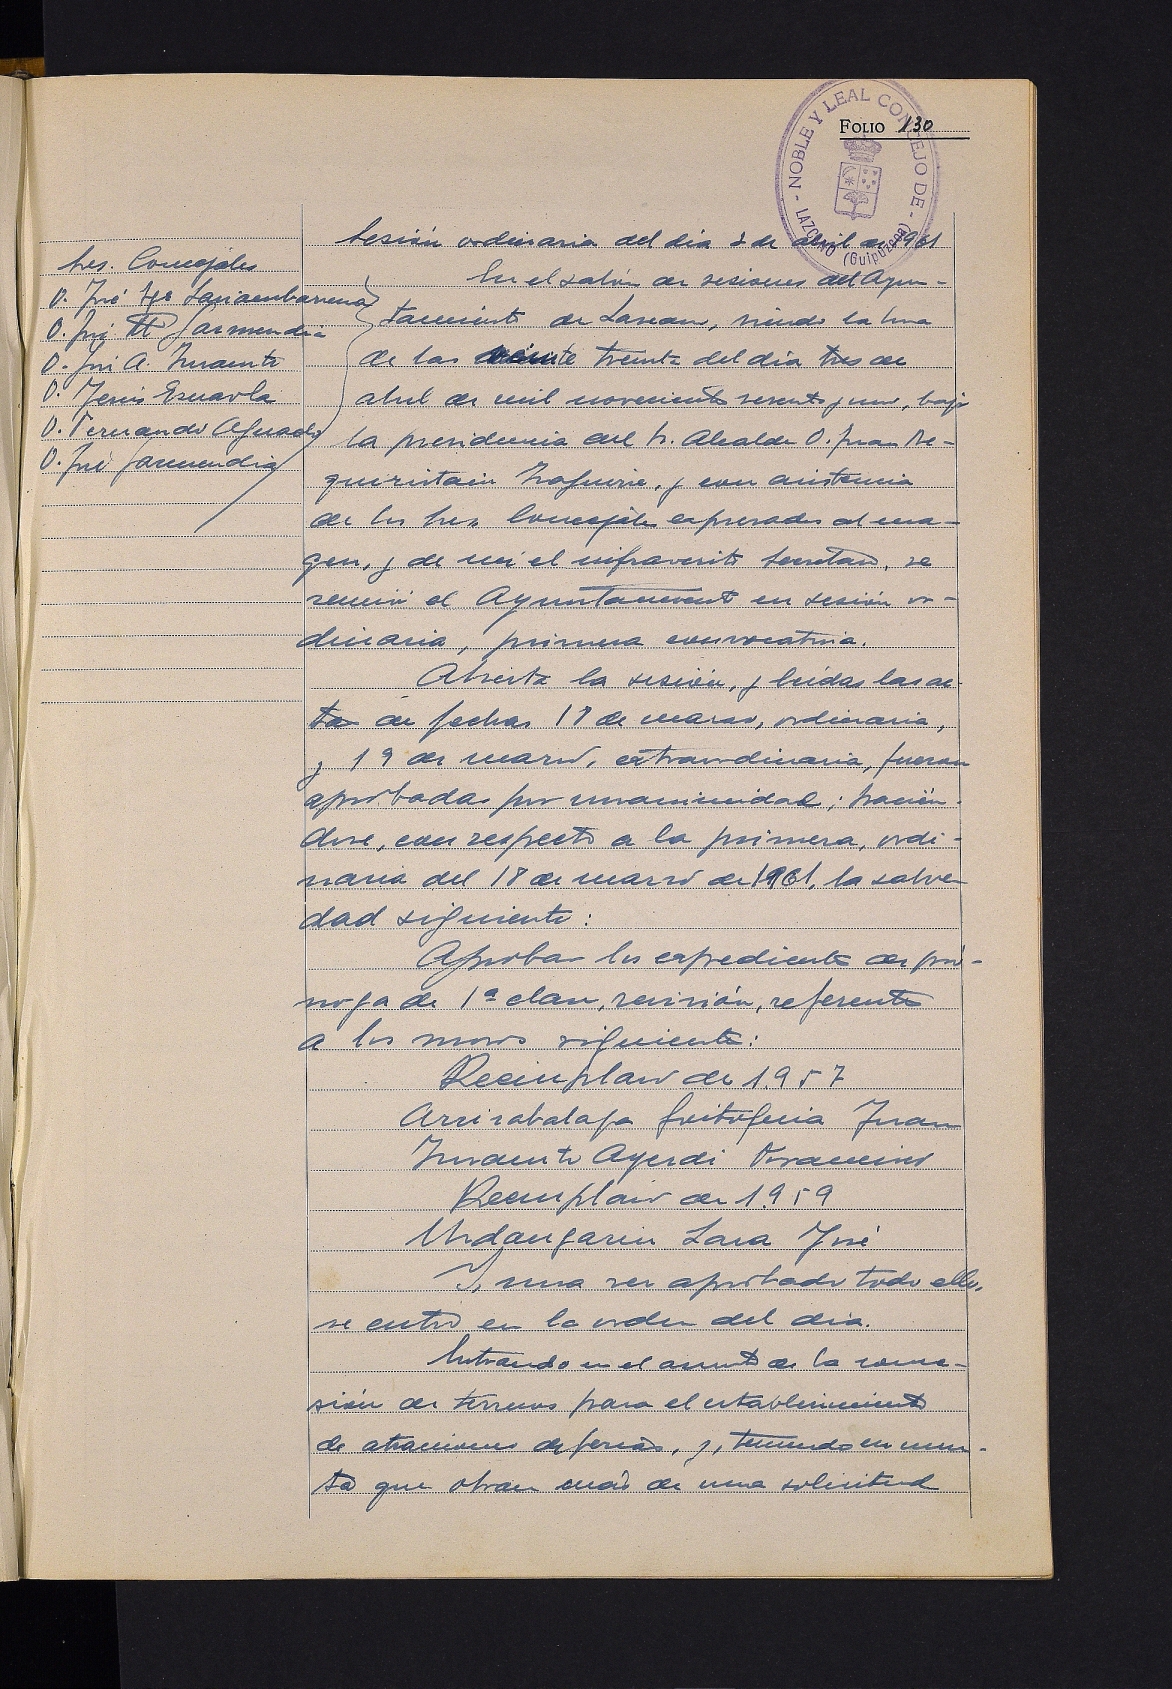 NOBLE Y LEAL CONCEJO DE
LAZCANO (Guipúzcoa)
FOLIO 130
Sesión ordinaria del dia 3 de abril de 1961
Sres. Concejales
D. José
D. José Mª Garmendia
D. José A. Insausti
D. Jesús
D. Fernando Aguado
D. José Garmendia
En el salón de sesiones del Ayun-
tamiento de Lazcano, siendo la hora
de las veinte treinta del dia tres de
abril de mil novecientos sesenta y uno, bajo
la presidencia del Sr. Alcalde D. Juan Be-
guiristain y con asistencia
de los Sres Concejales expresados al mar-
gen, y de mi el infrascrito Secretario, se
reunió el Ayuntamiento en sesión or-
dinaria, primera convocatoria.
Abierta la sesión, y leidas las ac-
tas de fechas 18 de marzo, ordinaria,
y 19 de marzo, extraordinaria, fueron
aprobadas por unanimidad; hacién-
dose, con respecto a la primera, ordi-
naria del 18 de marzo de 1961, la salve-
dad siguiente:
Aprobar los expedientes de pró-
rroga de 1ª clase, revisión, referentes
a los mozos siguientes:
Reemplazo de 1.957
Arrizabalaga Goitogeria Juan
Insausti Ayerdi Francisco
Reemplazo de 1.959
Urdangarin Lasa José
Y, una vez aprobado todo ello,
se entró en la orden del dia.
Entrando en el asunto de la conce-
sión de terrenos para el establecimiento
de atracciones de ferias, y, teniendo en cuen-
ta que obran más de una solicitud